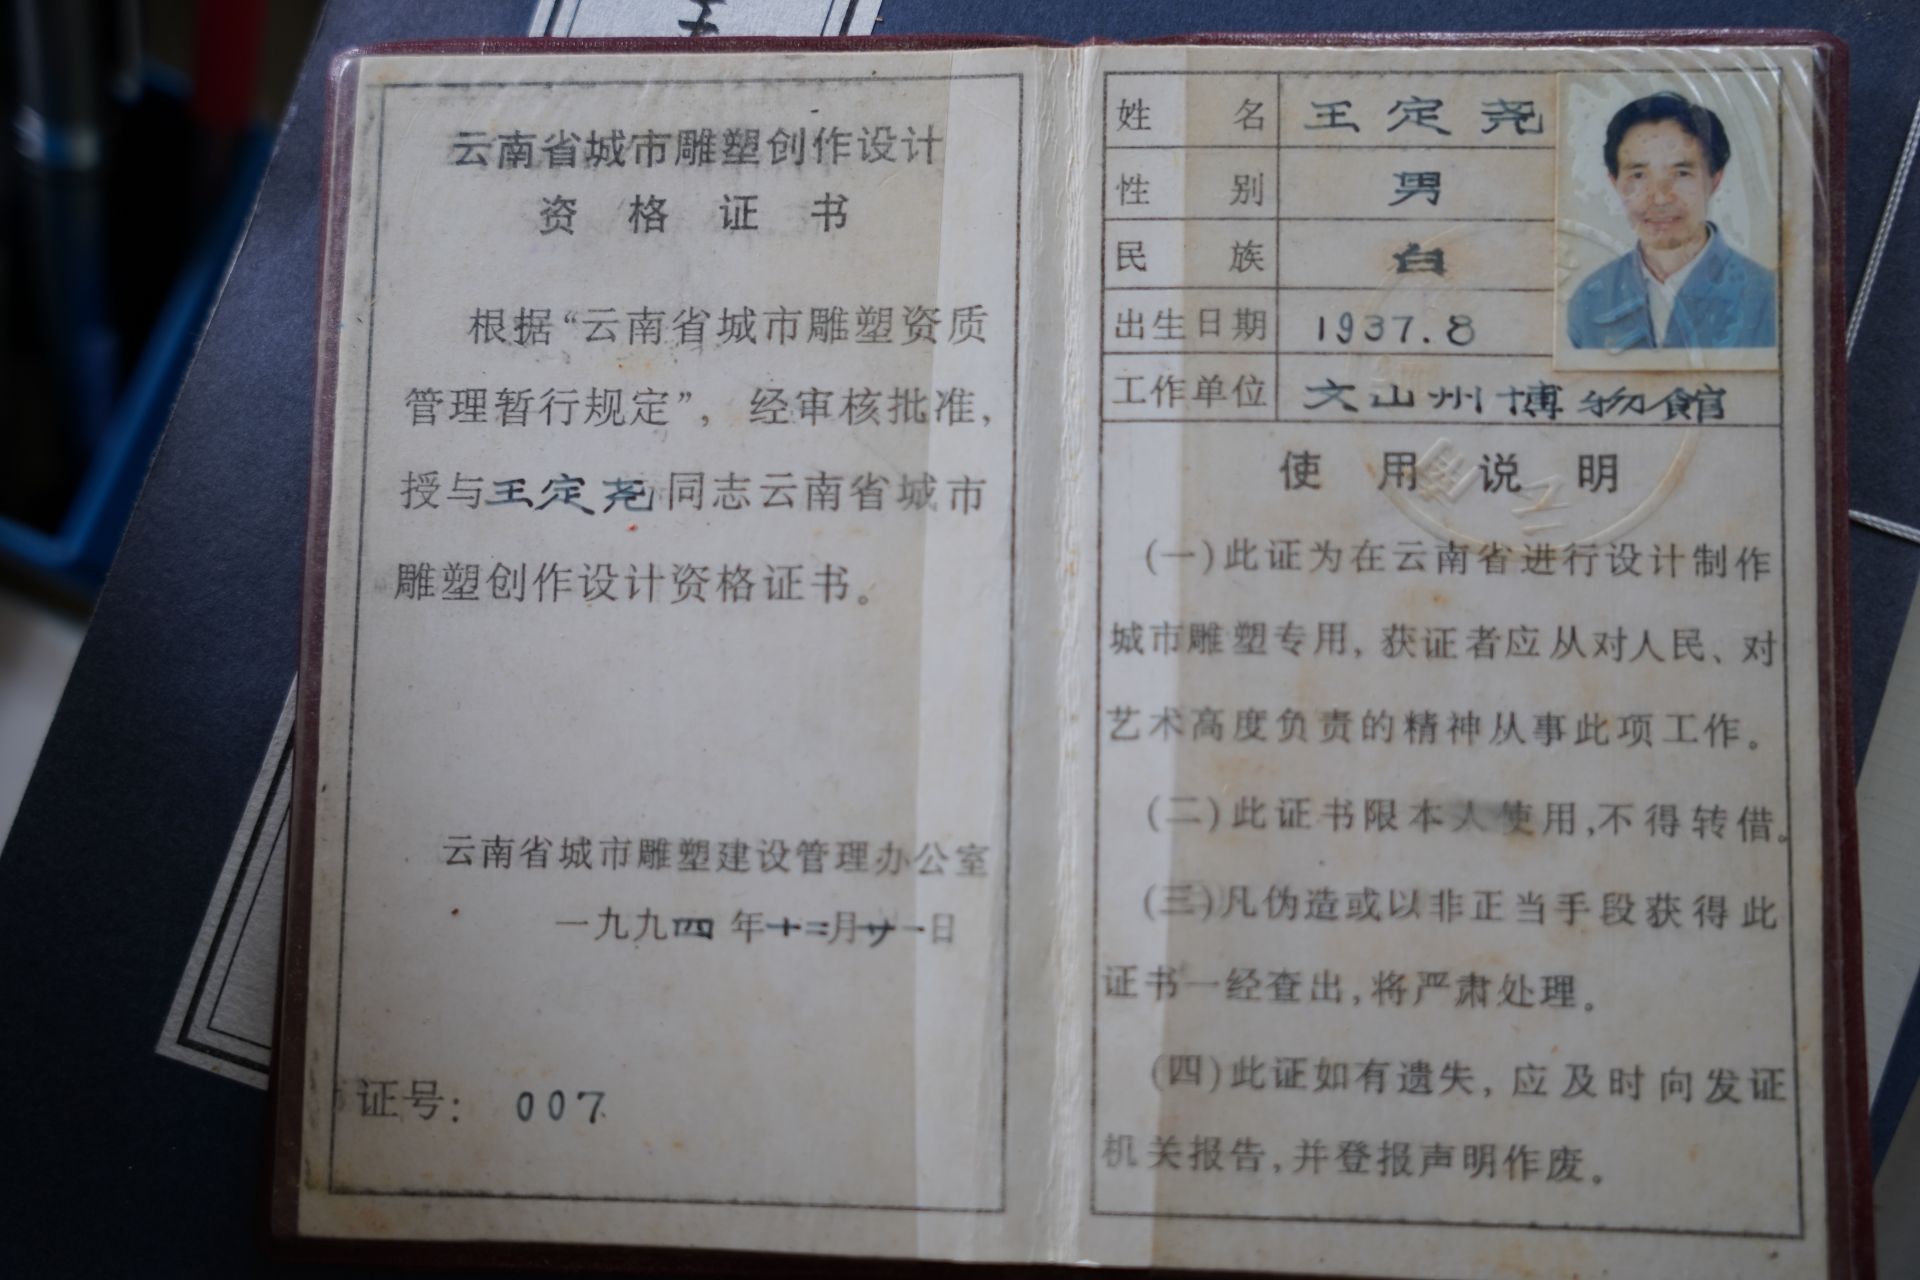 云南省城市雕塑创作设计
资格证书
根据“云南省城市雕塑资质
管理暂行规定”，经审核批准，
授与王定尧同志云南省城市
雕塑创作设计资格证书。
云南省城市雕塑建设管理办公室
一九九四年十二月廿一日
证号：007
姓名 王定尧
性别 男
民族 白
出生日期 1937.8
工作单位 文山州博物館
使用说明
(一)此证为在云南省进行设计制作
城市雕塑专用，获证者应从对人民、对
艺术高度负责的精神从事此项工作。
(二)此证书限本人使用，不得转借。
(三)凡伪造或以非正当手段获得此
证书一经查出，将严肃处理。
(四)此证如有遗失，应及时向发证
机关报告，并登报声明作废。
云南